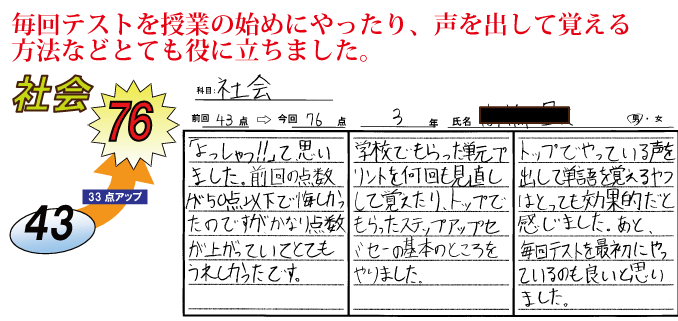 毎回テストを授業の始めにやったり、声を出して覚える
方法などとても役に立ちました。
社会
76
33点アップ
43
科目: 社会
前回 43 点 ⇨ 今回 76 点 3 年 氏名 男・女
「よっしゃっ!!」て思い
ました。前回の点数
が50点以下で悔しかっ
たのですがかなり点数
が上がっていてとても
うれしかったです。
学校でもらった単元プ
リントを何回も見直し
して覚えたり、トップで
もらったステップアップセ
ミセーの基本のところを
やりました。
トップでやっている声を
出して単語を覚えるやつ
はとっても効果的だと
感じました。あと、
毎回テストを最初にやっ
ているのも良いと思い
ました。